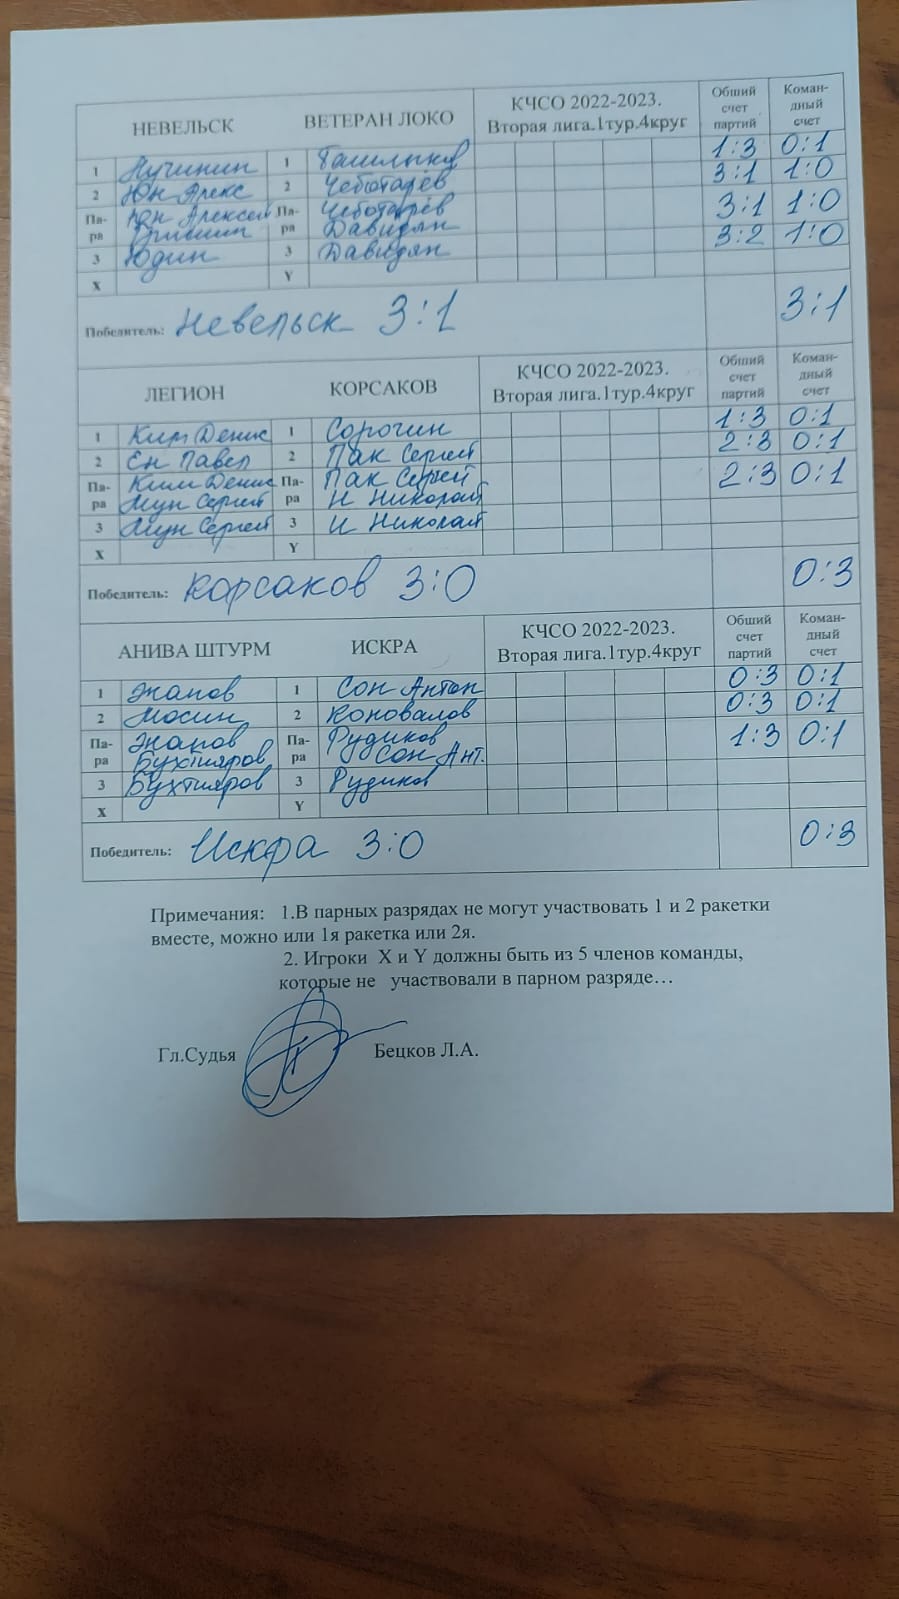 НЕВЕЛЬСК ВЕТЕРАН ЛОКО КЧСО 2022-2023. Вторая лига.1тур.4круг Общий счет партий Коман-дный счет
1 Лучинин 1 1:3 0:1
2 Юн Алекс 2 Чеботарёв 3:1 1:0
Па-ра Юн Алексей Па-ра Чеботарёв 3:1 1:0
Давидян
3 Юдин 3 Давидян 3:2 1:0
X Y
Победитель: Невельск 3:1 3:1
ЛЕГИОН КОРСАКОВ КЧСО 2022-2023. Вторая лига.1тур.4круг Общий счет партий Коман-дный счет
1 Ким Денис 1 Сорочин 1:3 0:1
2 Ен Павел 2 Пак Сергей 2:3 0:1
Па-ра Ким Денис Па-ра Пак Сергей 2:3 0:1
Мун Сергей И Николай
3 Мун Сергей 3 И Николай
X Y
Победитель: Корсаков 3:0 0:3
АНИВА ШТУРМ ИСКРА КЧСО 2022-2023. Вторая лига.1тур.4круг Общий счет партий Коман-дный счет
1 Жапов 1 Сон Антон 0:3 0:1
2 Мосин 2 Коновалов 0:3 0:1
Па-ра Жапов Па-ра Рудиков 1:3 0:1
Бухтияров Сон Ант.
3 Бухтияров 3 Рудиков
X Y
Победитель: Искра 3:0 0:3
Примечания: 1.В парных разрядах не могут участвовать 1 и 2 ракетки
вместе, можно или 1я ракетка или 2я.
2. Игроки X и Y должны быть из 5 членов команды,
которые не участвовали в парном разряде…
Гл.Судья Бецков Л.А.